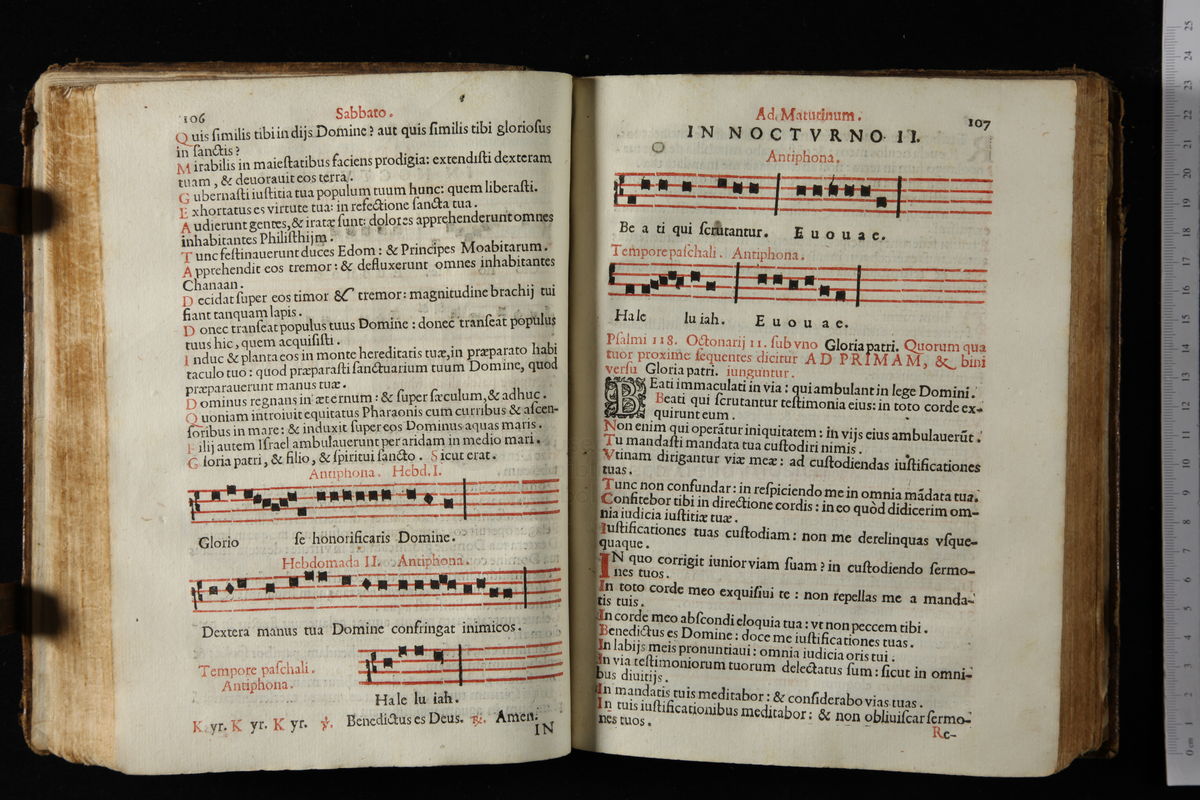 106
Sabbato.
Quis ſimilis tibi in dijs Domine? aut quis ſimilis tibi glorioſus
in ſanctis?
Mirabilis in maieſtatibus faciens prodigia: extendiſti dexteram
tuam, & deuorauit eos terra.
Gubernaſti iuſtitia tua populum tuum hunc: quem liberaſti.
Exhortatus es virtute tua: in refectione ſancta tua.
Audierunt gentes, & iratæ ſunt: dolores apprehenderunt omnes
inhabitantes Philiſthijm.
Tunc feſtinauerunt duces Edom: & Principes Moabitarum.
Apprehendit eos tremor: & defluxerunt omnes inhabitantes
Chanaan.
Decidat ſuper eos timor & tremor: magnitudine brachij tui
fiant tanquam lapis.
Donec tranſeat populus tuus Domine: donec tranſeat populus
tuus hic, quem acquiſiſti.
Induc & planta eos in monte hereditatis tuæ, in præparato habi
taculo tuo: quod præparaſti ſanctuarium tuum Domine, quod
præparauerunt manus tuæ.
Dominus regnans in æternum: & ſuper ſæculum, & adhuc.
Quoniam introiuit equitatus Pharaonis cum curribus & aſcen-
ſoribus in mare: & induxit ſuper eos Dominus aquas maris.
Filij autem Iſrael ambulauerunt per aridam in medio mari.
Gloria patri, & filio, & ſpiritui ſancto. Sicut erat.
Antiphona. Hebd. I.
Glorio ſe honorificaris Domine.
Hebdomada II. Antiphona.
Dextera manus tua Domine confringat inimicos.
Tempore paſchali.
Antiphona.
Hale lu iah.
Kyr. Kyr. Kyr. ℣. Benedictus es Deus. ℟. Amen.
IN
Ad Matutinum.
107
IN NOCTVRNO II.
Antiphona.
Be a ti qui ſcrutantur. E u o u a e.
Tempore paſchali. Antiphona.
Hale lu iah. E u o u a e.
Pſalmi 118. Octonarij 11. ſub vno Gloria patri. Quorum qua
tuor proxime ſequentes dicitur AD PRIMAM, & bini
verſu Gloria patri. iunguntur.
BEati immaculati in via: qui ambulant in lege Domini.
Beati qui ſcrutantur teſtimonia eius: in toto corde ex-
quirunt eum.
Non enim qui operãtur iniquitatem: in vijs eius ambulauerũt.
Tu mandaſti mandata tua cuſtodiri nimis.
Vtinam dirigantur viæ meæ: ad cuſtodiendas iuſtificationes
tuas.
Tunc non confundar: in reſpiciendo me in omnia mãdata tua.
Confitebor tibi in directione cordis: in eo quòd didicerim om-
nia iudicia iuſtitiæ tuæ.
Iuſtificationes tuas cuſtodiam: non me derelinquas vſque-
quaque.
IN quo corrigit iunior viam ſuam? in cuſtodiendo ſermo-
nes tuos.
In toto corde meo exquiſiui te: non repellas me a manda-
tis tuis.
In corde meo abſcondi eloquia tua: vt non peccem tibi.
Benedictus es Domine: doce me iuſtificationes tuas.
In labijs meis pronuntiaui: omnia iudicia oris tui.
In via teſtimoniorum tuorum delectatus ſum: ſicut in omni-
bus diuitijs.
In mandatis tuis meditabor: & conſiderabo vias tuas.
In tuis iuſtificationibus meditabor: & non obliuiſcar ſermo-
nes tuos.
Re-